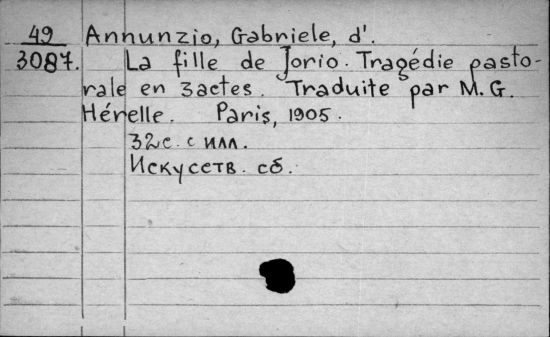 49 Annunzio, Gabriele, d'.
3087. La fille de Jorio. Tragédie pasto-
rale en 3 actes. Traduite par M. G.
Hérelle. Paris, 1905.
32с. с илл.
Искусств. сб.